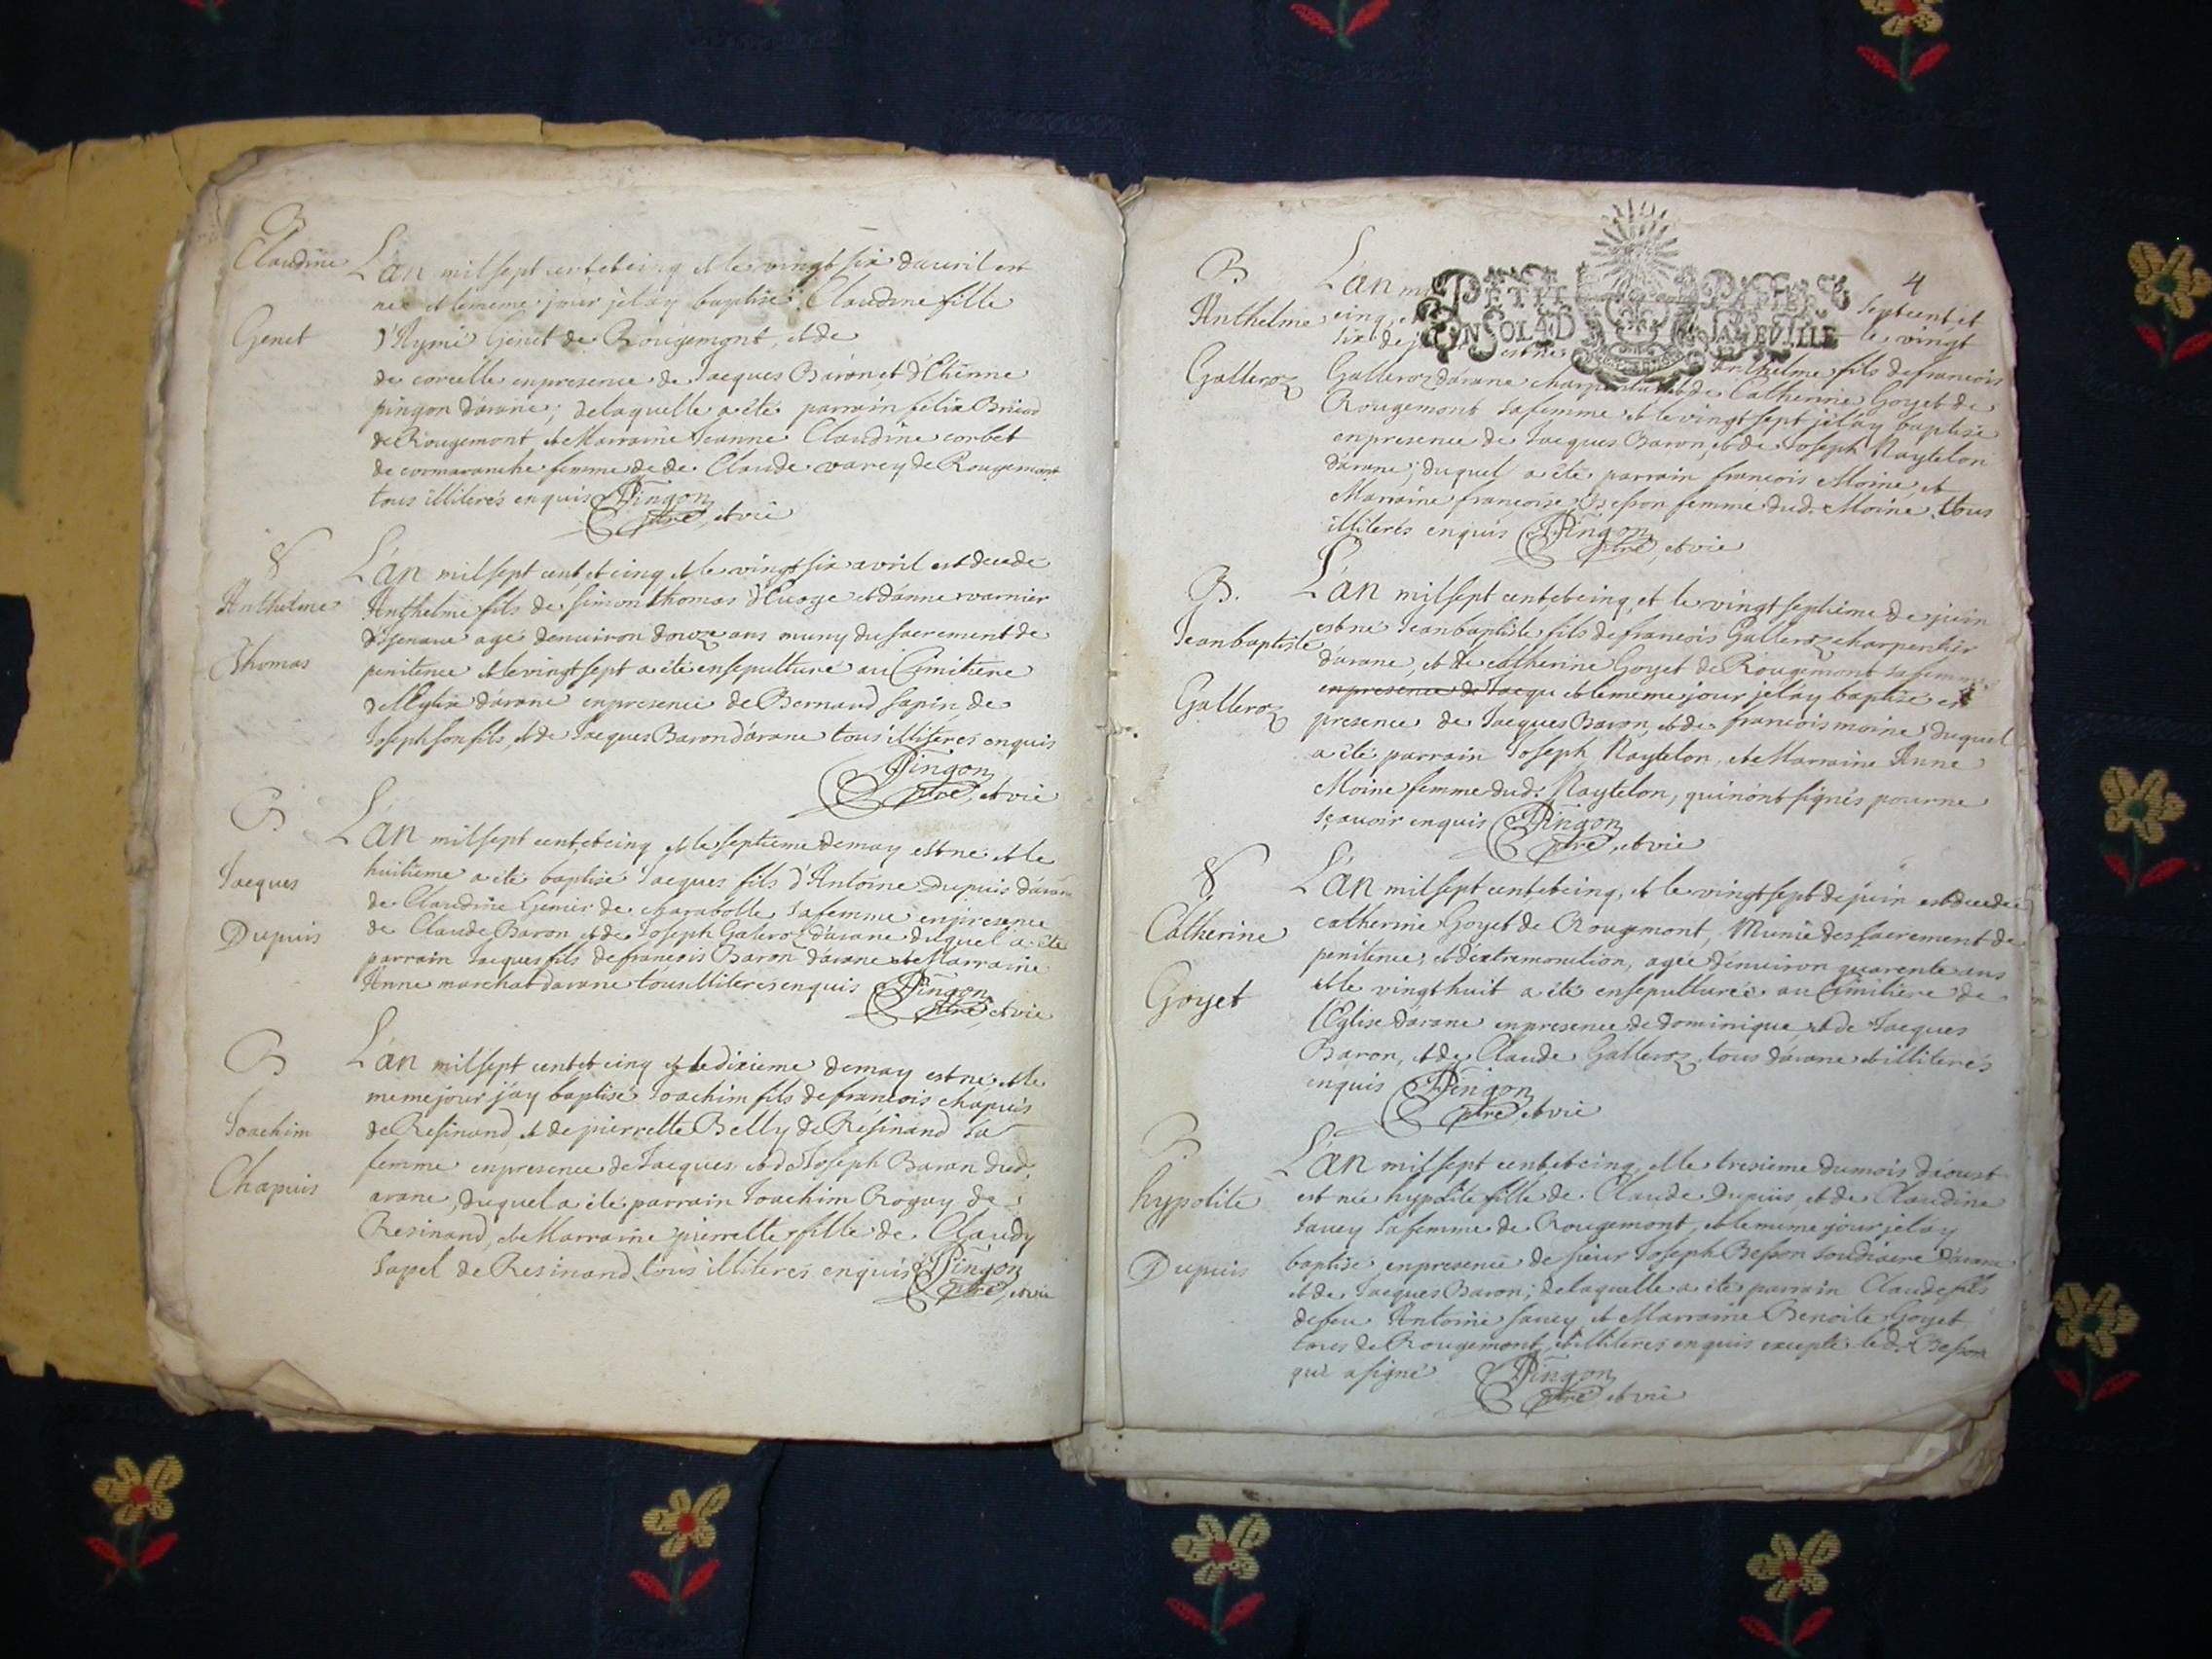 B
Claudine
Genet
L'an mil sept cent et cinq et le vingt six d'auril est
née et le meme jour je lay baptisé Claudine fille
d'Aymé Genet de Rougemont, et de
de corcelle en presence de Jacques Baron, et d'Etienne
pingon d'arane; de laquelle a été parrain felix
de Rougemont, et Marraine Jeanne Claudine corbet
de cormaranche femme de de Claude varey de Rougemont
tous illiterés enquis Pingon
ptre, et vic
Anthelme
Thomas
L'an mil sept cent, et cinq et le vingt six avril est decede
Anthelme fils de simon thomas d'Euoge et d'anne varnier
agé denuiron douze ans muny du sacrement de
penitence et le vingt sept a été ensepulturé au Cimitiere
de l'Eglise d'arane en presence de Bernard sapin de
Joseph son fils, et de Jacques Baron d'arane tous illiterés enquis
Pingon
ptre, et vic
B
Jacques
Dupuis
L'an mil sept cent, et cinq et le septieme de may est né et le
huitieme a été baptisé Jacques fils d'Antoine Dupuis d'arane
de Claudine Genier de charabotte sa femme en presence
de Claude Baron et de Joseph Galeroz d'arane duquel a été
parrain Jacques fils de francois Baron d'arane et Marraine
Anne marchat d'arane tous illiteres enquis Pingon
ptre, et vic
B
Joachim
Chapuis
L'an mil sept cent et cinq et le dixieme de may est né et le
meme jour j'ay baptisé Joachim fils de francois chapuis
de Resinand, et de pierrette Belly de Résinand sa
femme en presence de Jacques et de Joseph Baron dud.
arane, duquel a été parrain Joachim Rogay de
Resinand, et Marraine pierrette fille de Claudy
sapel de Resinand tous illiterés enquis Pingon
ptre, et vic
4
PETIT PAPIER
IN SOL 4D LA FEVILLE
B
Anthelme
Galleroz
L'an septcent, et
cinq, et le vingt
six de est né Anthelme fils de francois
Galleroz d'arane charpentier, et de Catherine Goyet de
Rougemont sa femme et le vingt sept je lay baptisé
en presence de Jacques Baron, et de Joseph Naytelon
d'arane; duquel a été parrain francois Moine, et
Marraine francoise Besson femme dud. Moine tous
illiterés enquis Pingon
ptre, et vic
B.
Jean baptiste
Galleroz
L'an mil sept cent, et cinq, et le vingt septieme de juin
est né Jean baptiste fils de francois Galleroz charpentier
d'arane, et de catherine Goyet de Rougemont sa femme
en presence de Jacqu et le meme jour je lay baptisé en
presence de Jacques Baron, et de francois moine duquel
a été parrain Joseph Naytelon, et Marraine Anne
Moine femme dud. Naytelon, qui n'ont signés pour ne
sçauoir enquis Pingon
ptre, et vic
Catherine
Goyet
L'an mil sept cent, et cinq, et le vingt sept de juin est decedee
catherine Goyet de Rougemont, Munie des sacrement de
penitence, et d'extremonction, agée denuiron quarente ans
et le vingt huit a été ensepulturée au Cimitiere de
l'Eglise d'arane en presence de dominique et de Jacques
Baron, et de Claude Galleroz, tous d'arane et illiterés
enquis Pingon
ptre, et vic
B.
hypolite
Dupuis
L'an mil sept cent, et cinq, et le tresieme du mois d'aoust
est née hypolite fille de Claude Dupuis, et de Claudine
sauey sa femme de Rougemont, et le meme jour je lay
baptisé en presence de sieur Joseph Besson soudiacre d'arane
et de Jacques Baron; de laquelle a été parrain Claude fils
de feu Antoine sauey et Marraine Benoite Goyet
tous de Rougemont, et illiteres enquis excepté led. Besson
qui a signé Pingon
ptre, et vic